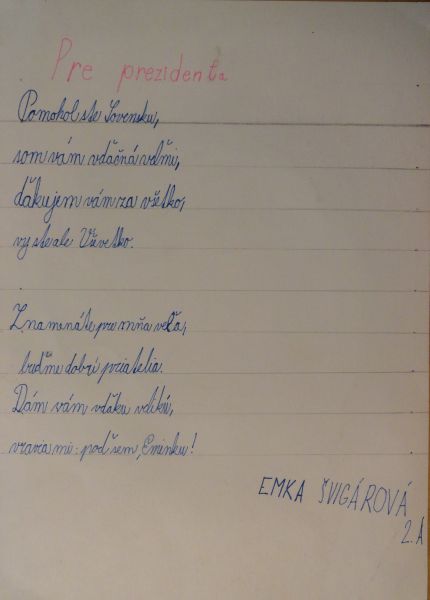 Pre prezidenta
Pomohol ste Sovensku,
som vám vďačná veľmi,
ďakujem vám za všetko,
vy ste ale Všvetko.
Znamenáte pre mňa veľa,
buďme dobrí priatelia.
Dám vám vďaku veľikú,
vravia mi: poď sem, Eminku!
EMKA ŠVIGÁROVÁ
2.A